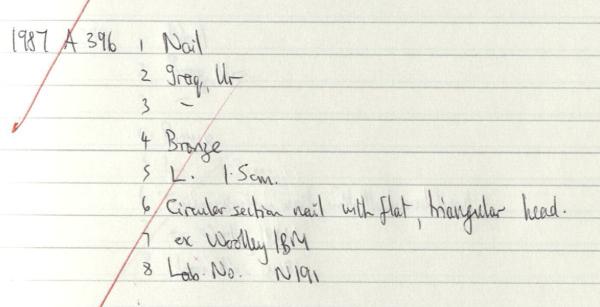 1987 A 396 1 Nail
2 Iraq, Ur
3 –
4 Bronze
5 L. 1.5cm.
6 Circular section nail with flat, triangular head.
7 ex Woolley/BM
8 Lab. No. N191